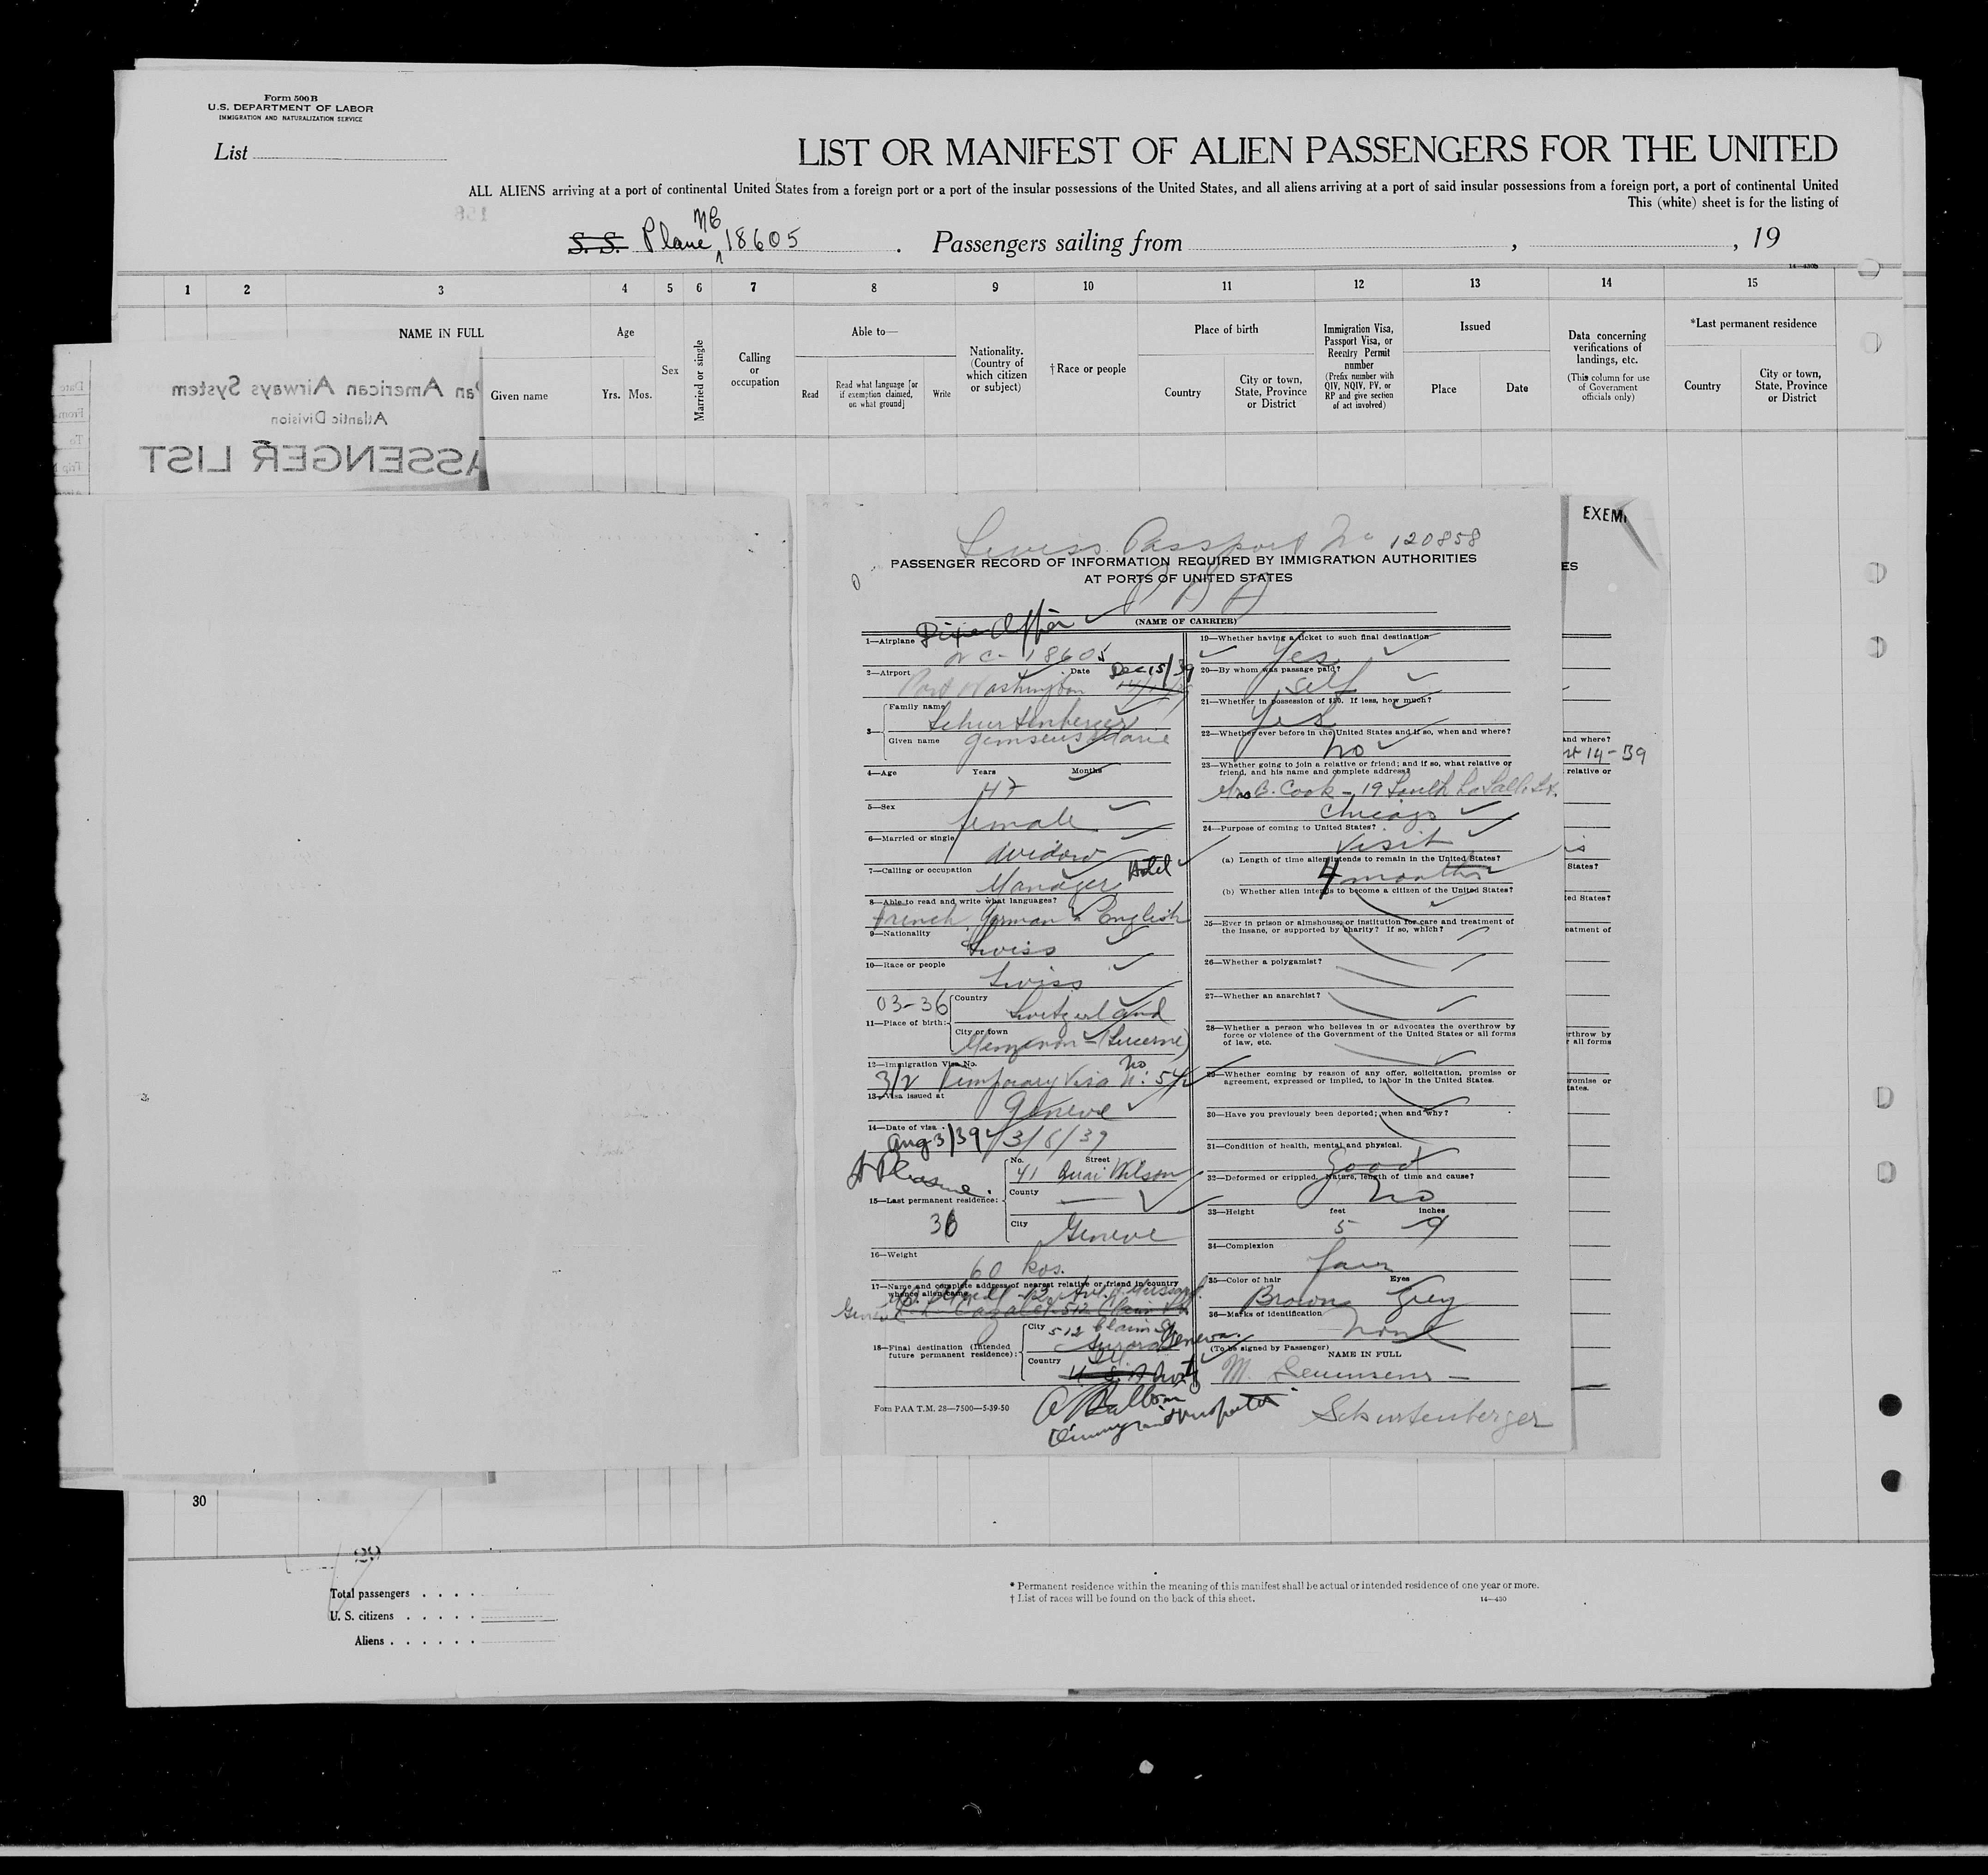 Form 500 B
U.S. DEPARTMENT OF LABOR
IMMIGRATION AND NATURALIZATION SERVICE
List
LIST OR MANIFEST OF ALIEN PASSENGERS FOR THE UNITED
ALL ALIENS arriving at a port of continental United States from a foreign port or a port of the insular possessions of the United States, and all aliens arriving at a port of said insular possessions from a foreign port, a port of continental United
This (white) sheet is for the listing of
S. S. Plane NC 18605 . Passengers sailing from , , 19
14—430B
1 2 3 4 5 6 7 8 9 10 11 12 13 14 15
NAME IN FULL
Given name
Age
Yrs. Mos.
Sex
Married or single
Calling
or
occupation
Able to—
Read
Read what language [or
if exemption claimed,
on what ground]
Write
Nationality.
(Country of
which citizen
or subject)
† Race or people
Place of birth
Country
City or town,
State, Province
or District
Immigration Visa,
Passport Visa, or
Reentry Permit
number
(Prefix number with
QIV, NQIV, PV, or
RP and give section
of act involved)
Issued
Place
Date
Data concerning
verifications of
landings, etc.
(This column for use
of Government
officials only)
*Last permanent residence
Country
City or town,
State, Province
or District
Pan American Airways System
Atlantic Division
ASSENGER LIST
Date
From
To
Trip
EXEM
ES
and where?
14-39
relative or
States?
ted States?
eatment of
rthrow by
r all forms
romise or
tates.
Swiss Passport No 120858
PASSENGER RECORD OF INFORMATION REQUIRED BY IMMIGRATION AUTHORITIES
AT PORTS OF UNITED STATES
(NAME OF CARRIER)
1—Airplane Dixie Clipper
NC-18605
2—Airport Port Washington Date Dec 15/39
3— Family name Schurtenberger
Given name Gemsens Marie
4—Age Years 47 Months
5—Sex female
6—Married or single widow
7—Calling or occupation Manager Hotel
8—Able to read and write what languages?
French, German & English
9—Nationality Swiss
10—Race or people Swiss
03-36
11—Place of birth: Country Switzerland
City or town (Lucerne)
12—Immigration Visa No.
3/2 Temporary Visa No: 542
13—Visa issued at Geneve
14—Date of visa Aug 3/39 3/8/39
Pleasure
15—Last permanent residence: No. 41 Street Quai Wilson
County —
36 City Geneve
16—Weight 60 kos.
17—Name and complete address of nearest relative or friend in country
whence alien came
18—Final destination (Intended
future permanent residence): City 512 Claim St.
Aurora Geneva
Country Ill
Form PAA T.M. 28—7500—5-39-50
Immigrant Inspector
19—Whether having a ticket to such final destination
Yes
20—By whom was passage paid?
self
21—Whether in possession of $50. If less, how much?
Yes
22—Whether ever before in the United States and if so, when and where?
No
23—Whether going to join a relative or friend; and if so, what relative or
friend, and his name and complete address?
Mrs B. Cook - 19 South LaSalle St.
Chicago
24—Purpose of coming to United States?
Visit
(a) Length of time alien intends to remain in the United States?
4 months
(b) Whether alien intends to become a citizen of the United States?
25—Ever in prison or almshouse, or institution for care and treatment of
the insane, or supported by charity? If so, which?
26—Whether a polygamist?
27—Whether an anarchist?
28—Whether a person who believes in or advocates the overthrow by
force or violence of the Government of the United States or all forms
of law, etc.
29—Whether coming by reason of any offer, solicitation, promise or
agreement, expressed or implied, to labor in the United States.
30—Have you previously been deported; when and why?
31—Condition of health, mental and physical.
Good
32—Deformed or crippled. Nature, length of time and cause?
No
33—Height feet 5 inches 9
34—Complexion fair
35—Color of hair Brown Eyes Grey
36—Marks of identification None
(To be signed by Passenger)
NAME IN FULL
M. Gemsens —
Schurtenberger
30
29
Total passengers . . . .
U. S. citizens . . . . .
Aliens . . . . . .
* Permanent residence within the meaning of this manifest shall be actual or intended residence of one year or more.
† List of races will be found on the back of this sheet.
14—430